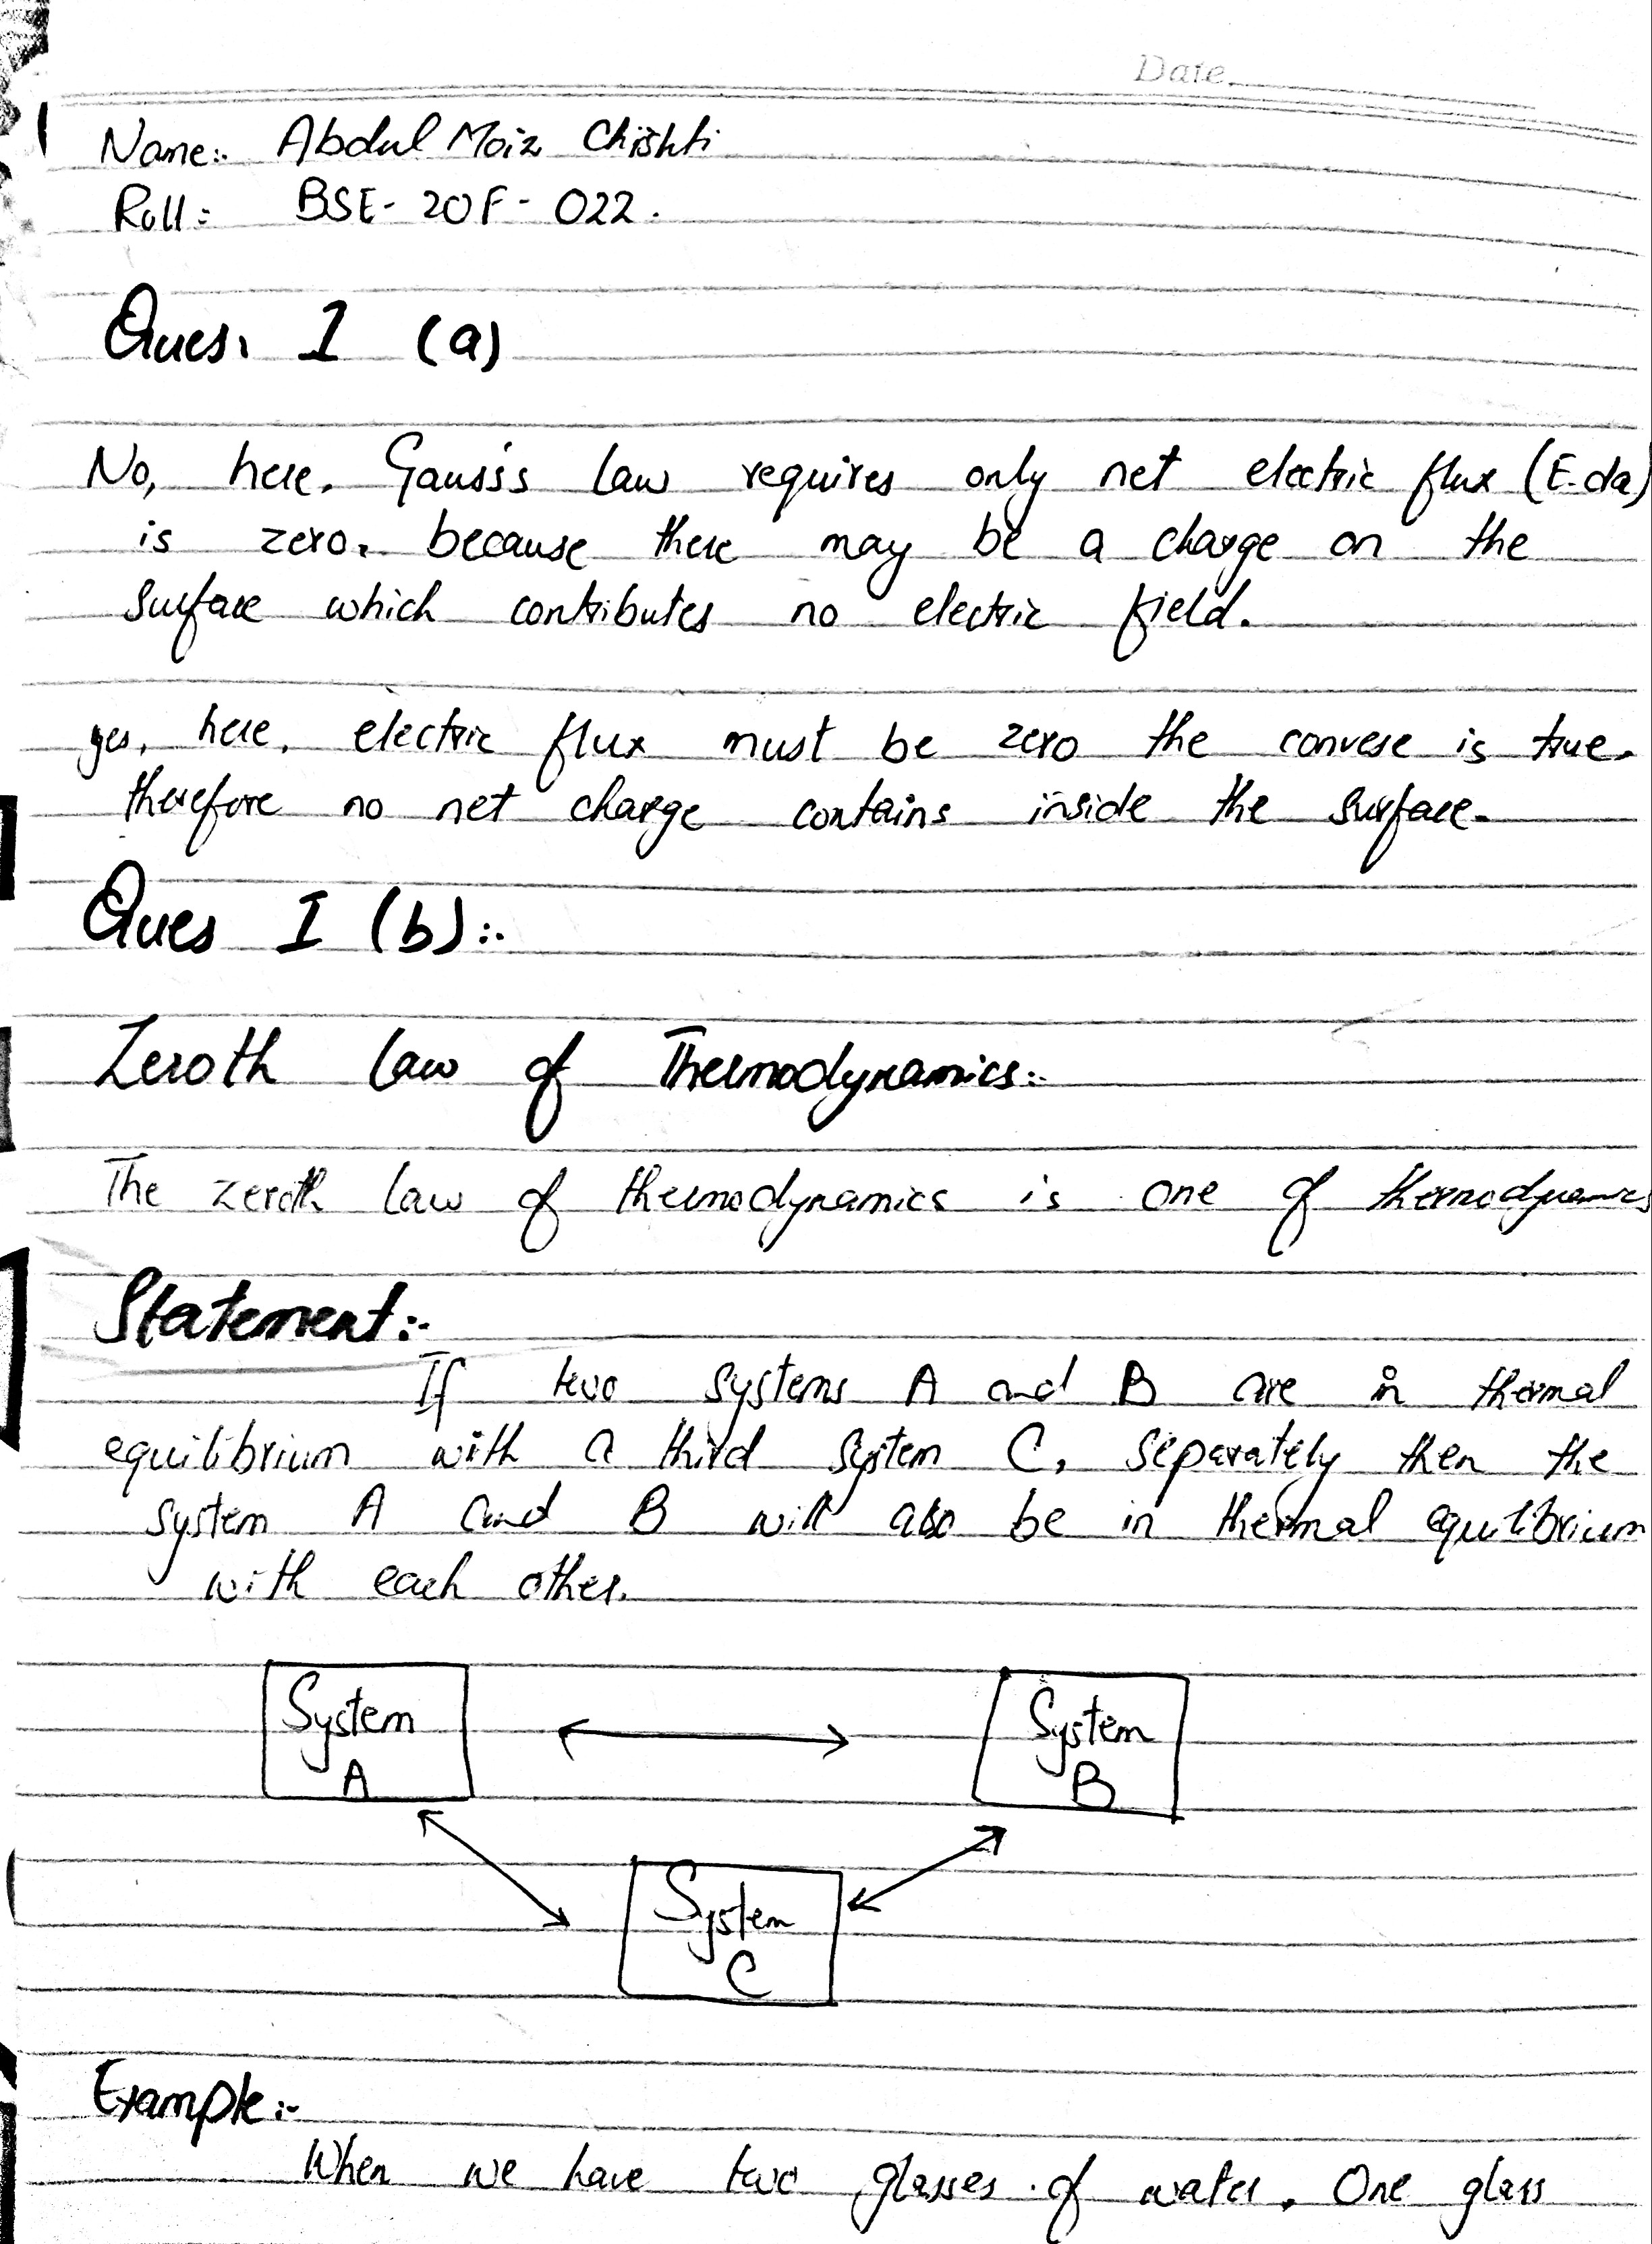 Date.
Name:. Abdul Moiz Chishti
Roll: BSE- 20F- 022.
Ques. 1 (a)
No, here, Gauss's law requires only net electric flux (E.da)
is zero, because there may be a charge on the
surface which contributes no electric field.
yes, here, electric flux must be zero the convese is true.
therefore no net charge contains inside the surface.
Ques I (b):.
Zeroth law of Thermodynamics:.
The zeroth law of thermodynamics is one of thermodynamics
Statement:.
If two systems A and B are in thermal
equilibrium with a third system C, separately then the
system A and B will also be in thermal equilibrium
with each other.
System
A
System
B
System
C
Example:-
When we have two glasses of water. One glass